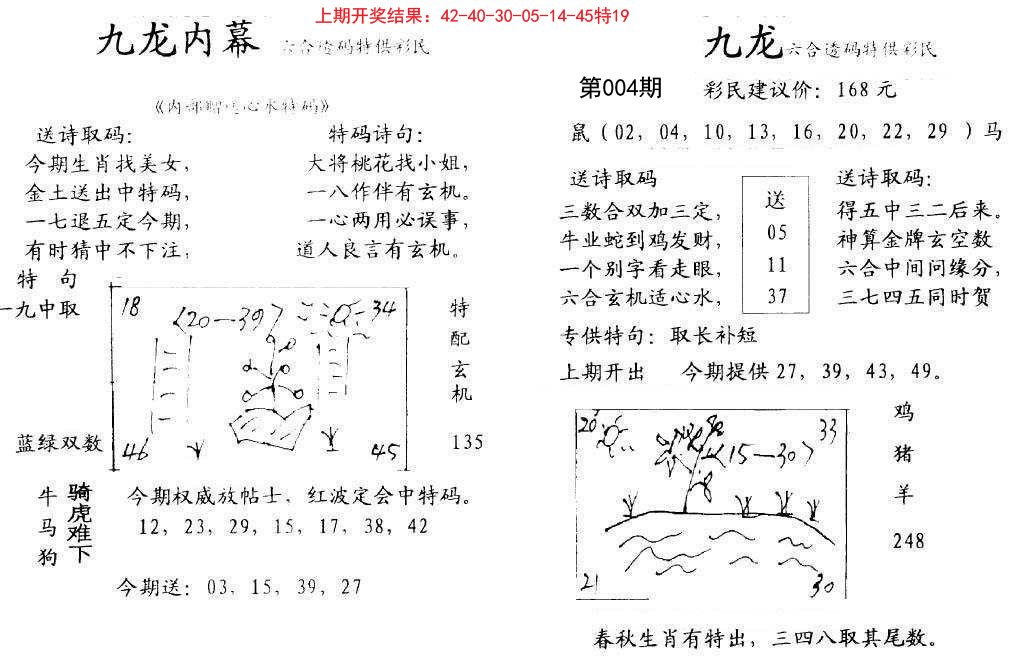 上期开奖结果：42-40-30-05-14-45特19
九龙内幕 六合透码特供彩民
《内部赠送心水特码》
送诗取码：
今期生肖找美女，
金土送出中特码，
一七退五定今期，
有时猜中不下注，
特码诗句：
大将桃花找小姐，
一八作伴有玄机。
一心两用必误事，
道人良言有玄机。
特 句
一九中取
蓝绿双数
18
〈20—39〉
34
46
45
特
配
玄
机
135
牛
马
狗
骑
虎
难
下
今期权威放帖士，红波定会中特码。
12，23，29，15，17，38，42
今期送：03，15，39，27
九龙 六合透码特供彩民
第004期 彩民建议价：168 元
鼠（02，04，10，13，16，20，22，29 ）马
送诗取码
三数合双加三定，
牛业蛇到鸡发财，
一个别字看走眼，
六合玄机适心水，
送
05
11
37
送诗取码：
得五中三二后来。
神算金牌玄空数
六合中间问缘分，
三七四五同时贺
专供特句：取长补短
上期开出 今期提供 27，39，43，49。
20
33
〈15—30〉
21
30
鸡
猪
羊
248
春秋生肖有特出，三四八取其尾数。